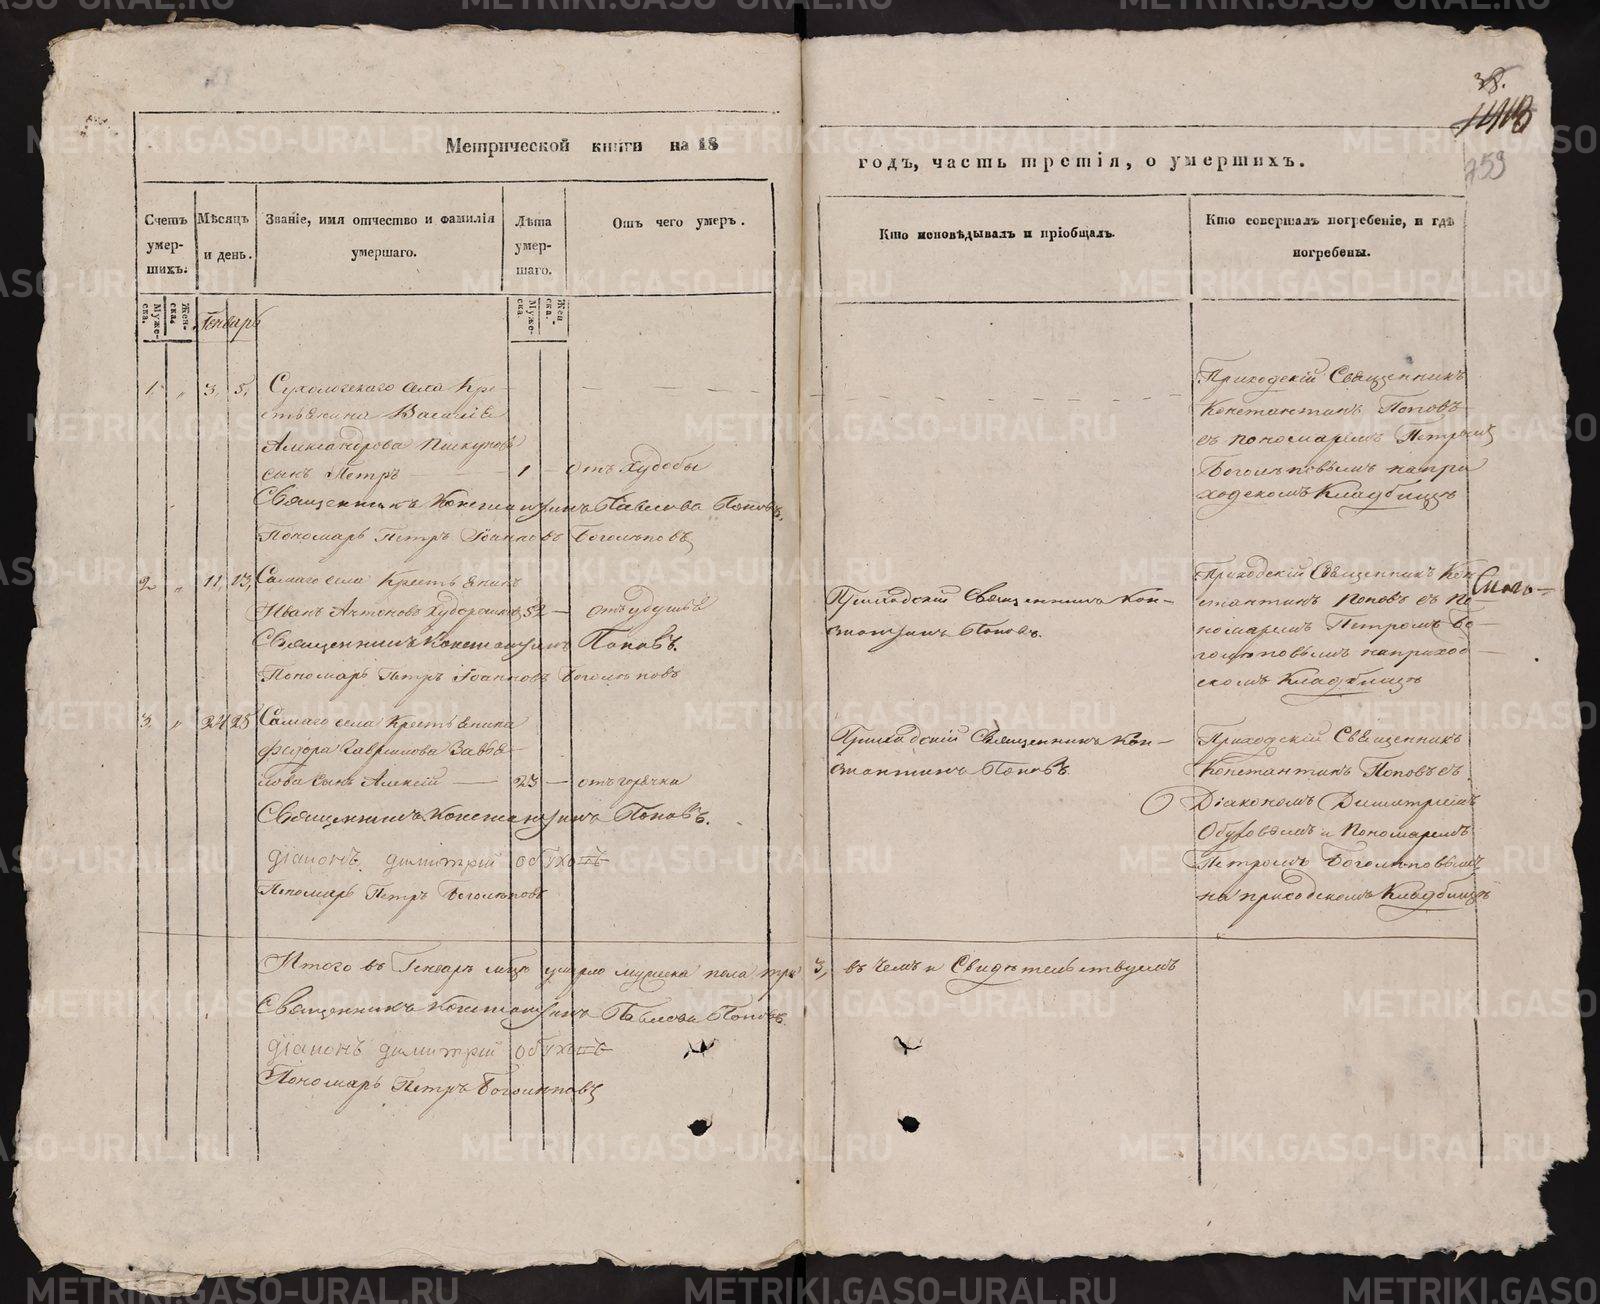 METRIKI.GASO-URAL.RU
38.
759
Метрической книги на 18
годъ, часть третія, о умершихъ.
Счетъ умер-шихъ.
Мужеска.
Женска.
Мѣсяцъ и день.
Генварь
Званіе, имя отчество и фамилія
умершаго.
Лѣта умер-шаго.
Мужеска.
Женска.
Отъ чего умеръ.
Кто исповѣдывалъ и пріобщалъ.
Кто совершалъ погребеніе, и гдѣ
погребены.
1. „ 3, 5,
Сухоложскаго села Кре-
стьянина Василія
Александрова Пискунова
сынъ Петръ — 1 — отъ худобы
Священникъ Константинъ Павловъ Поповъ.
Пономарь Петръ Іоанновъ Боголѣповъ
Приходскій Священникъ
Константинъ Поповъ
съ пономаремъ Петромъ
Боголѣповымъ на при
ходскомъ Кладбищѣ
2 „ 11, 13,
Самаго села Крестьянинъ
Иванъ Антоновъ 52 — отъ удушья
Священникъ Константинъ Поповъ.
Пономарь Петръ Іоанновъ Боголѣповъ
Приходскій Священникъ Кон-
стантинъ Поповъ.
Приходскій Священникъ Кон
стантинъ Поповъ съ По-
номаремъ Петромъ Бо-
голѣповымъ на приход-
скомъ Кладбищѣ
3 „ 24 25
Самаго села Крестьянина
Федора Гаврилова Завья-
лова сынъ Алексій — 23 — отъ горячки
Священникъ Константинъ Поповъ.
діаконъ димитрій обуховъ
Пономарь Петръ Боголѣповъ
Приходскій Священникъ Кон-
стантинъ Поповъ
Приходскій Священникъ
Константинъ Поповъ съ
Діакономъ Димитріемъ
Обуховымъ и Пономаремъ
Петромъ Боголѣповымъ
на приходскомъ Кладбищѣ
Итого въ Генварѣ мцѣ умерло мужеска пола три 3, въ чемъ и Свидѣтельствуемъ
Священникъ Константинъ Павловъ Поповъ.
діаконъ димитрій обуховъ
Пономарь Петръ Боголѣповъ